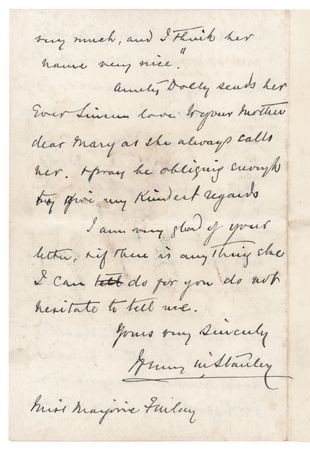 very much, and I think her
name very nice".
Aunty Dolly sends her
Ever Sincere love to your Mother
dear Mary as she always calls
her. & pray be obliging enough
to give my Kindest regards
I am very glad of your
letter, & if there is anything else
I can tell do for you do not
hesitate to tell me.
Yours very Sincerely
Henry M Stanley
Miss Marjorie Finlay